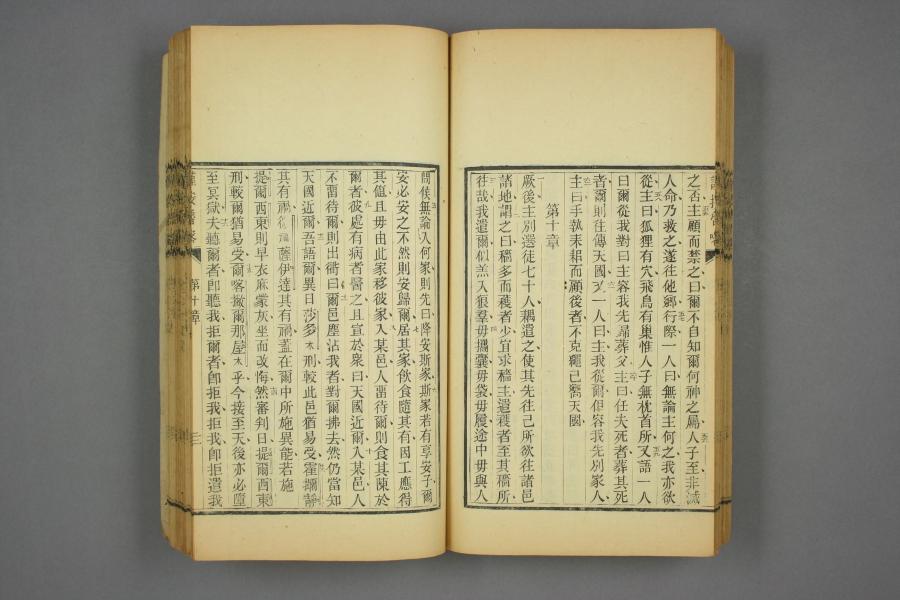 之否主顧而禁之曰爾不自知爾何神之屬人子至非滅
人命乃救之遂往他鄉行際一人曰無論主何之我亦欲
從主曰狐狸有穴飛鳥有巢惟人子無枕首所又語一人
曰爾從我對曰主容我先歸葬父主曰任夫死者葬其死
者爾則往傳天國又一人曰主我從爾但容我先別家人
主曰手執耒耜而顧後者不克
天國
第十章
厥後主別選徒七十人耦遣之使其先往己所欲往諸邑
諸地謂之曰穡多而穫者少宜求穡主遣穫者至其穡所
往哉我遣爾似羔入狼羣毋攜囊毋袋毋履途中毋與人
問候無論入何家則先曰降安斯家斯家若有享安子爾
安必安之不然則安歸爾居其家飲食隨其有因工應得
其值且毋由此家移彼家入某邑人留待爾則食其陳於
爾者彼處有病者醫之且宣於衆曰天國近爾入某邑人
不留待爾則出衢曰爾邑塵沾我者對爾拂去然仍當知
天國近爾吾語爾異日莎多木刑較此邑猶易受霍
其有禍
薩伊達其有禍蓋在爾中所施異能若施
提爾西東則早衣麻蒙灰坐而改悔然審判日提爾西東
刑較爾猶易受爾客撇爾那屋木乎今接至天後亦必墮
至冥獄夫聽爾者即聽我拒爾者即拒我拒我即拒遣我
第十章